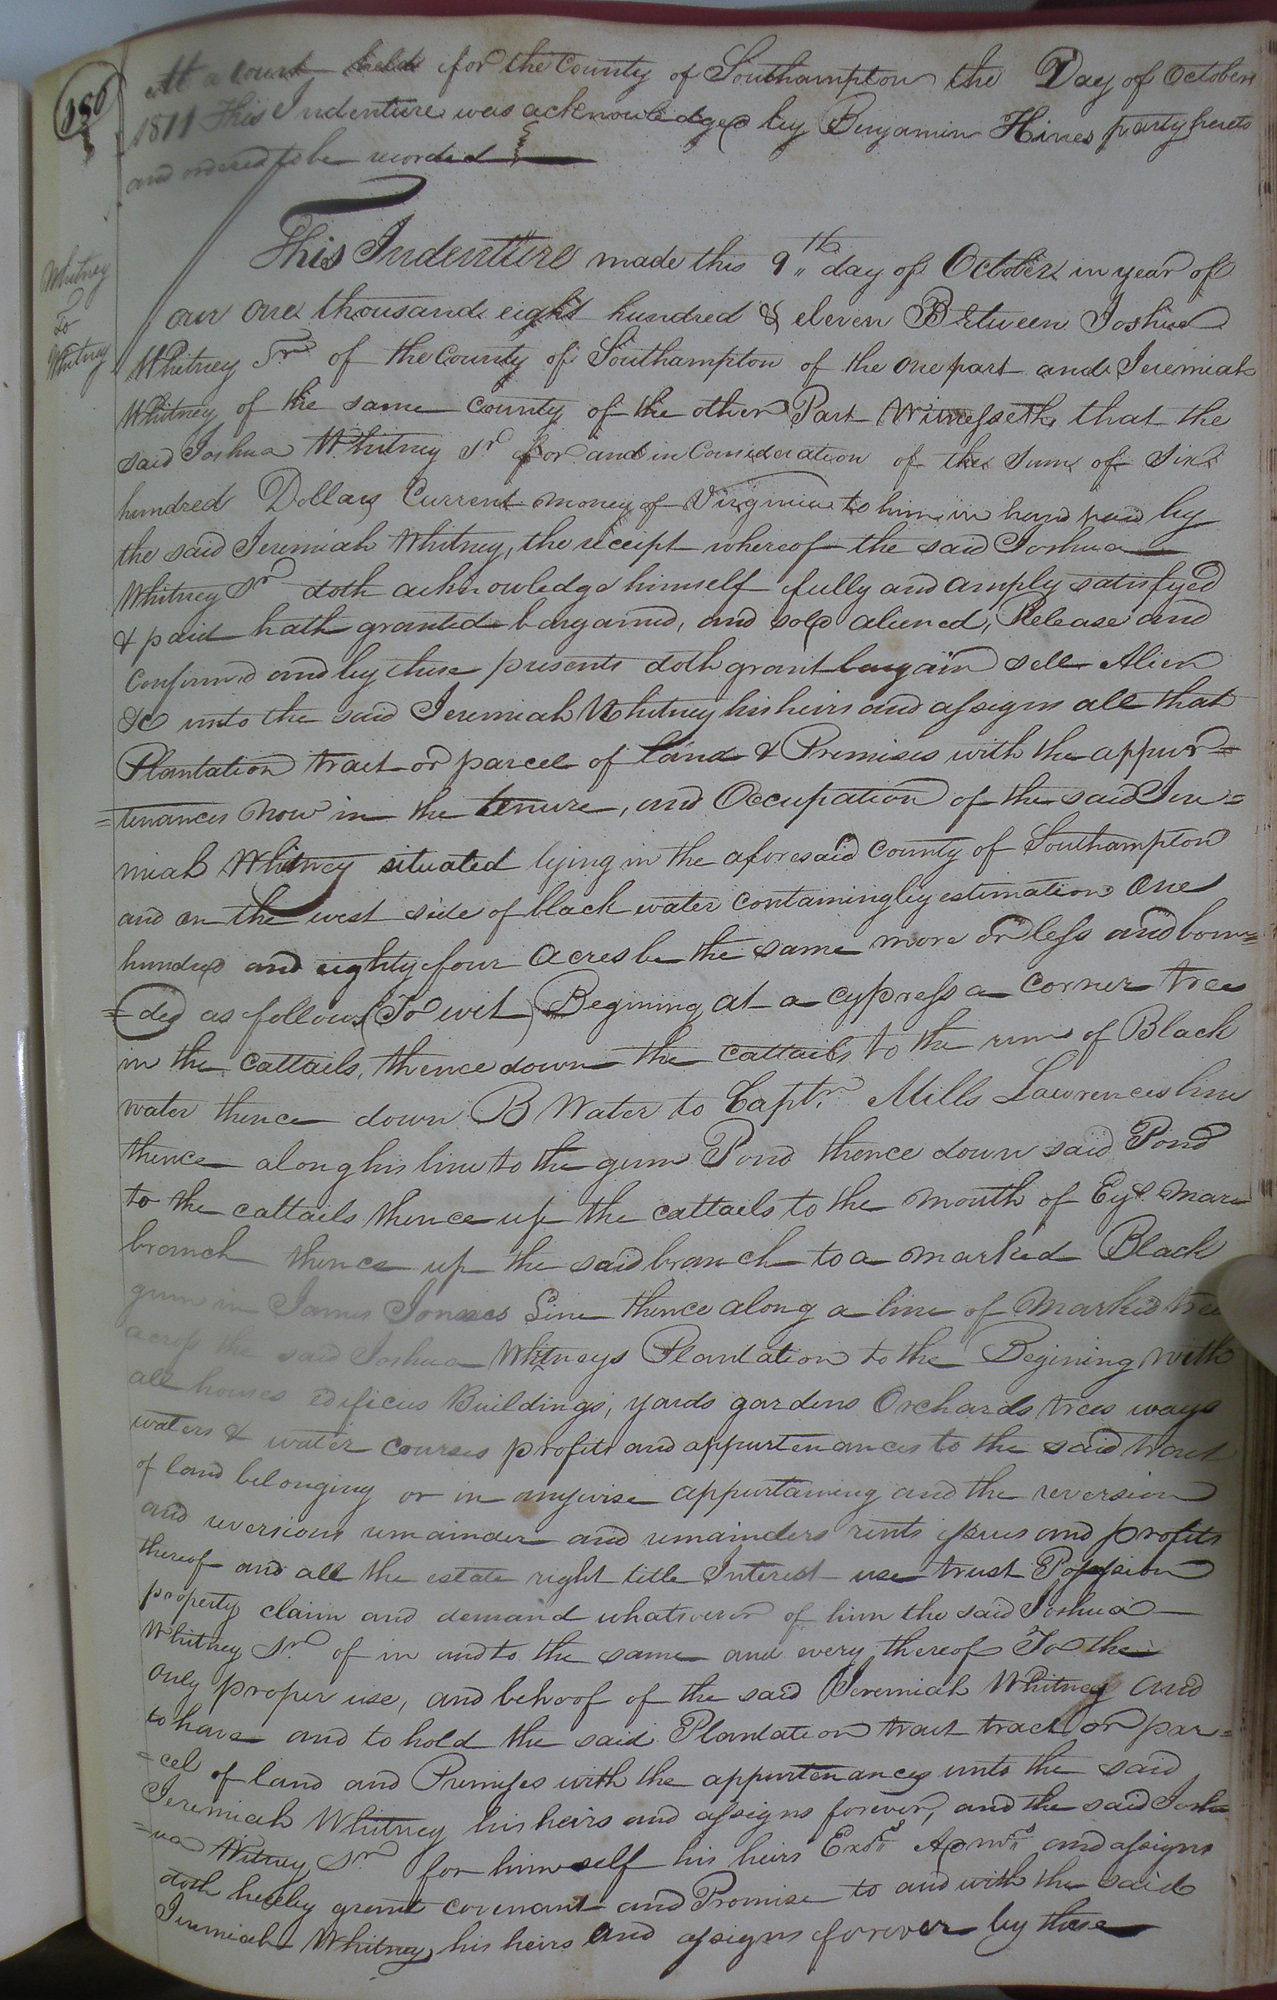 186
At a Court held for the County of Southampton the Day of October
1811 This Indenture was acknowledged by Benjamin Hines party hereto
and ordered to be recorded
Whitney
To
Whitney
This Indenture made this 9th day of October in year of
our one thousand eight hundred & eleven Between Joshua
Whitney Sr of the County of Southampton of the one part and Jeremiah
Whitney of the same county of the other Part Witnesseth that the
said Joshua Whitney Sr for and in Consideration of the Sum of Six
hundred Dollars Current money of Virginia to him in hand paid by
the said Jeremiah Whitney, the receipt whereof the said Joshua
Whitney Sr doth acknowledge himself fully and amply satisfyed
& paid hath granted bargained, and sold aliened, Release and
Confirmd and by these presents doth grant bargain sell Alien
&c unto the said Jeremiah Whitney his heirs and assigns all that
Plantation tract or parcel of land & Premises with the appur=
=tenances now in the tenure, and Occupation of the said Jere=
miah Whitney situated lying in the aforesaid County of Southampton
and on the west side of black water containing by estimation One
hundred and eighty four acres be the same more or less and boun=
=ded as follows (To wit) Begining at a cypress a corner tree
in the cattails, thence down the cattails to the run of Black
water thence down B Water to Captn. Mills Lawrences line
thence along his line to the gum Pond thence down said Pond
to the cattails thence up the cattails to the mouth of Mare
branch thence up the said branch to a marked Black
gum in James Joness Line thence along a line of Marked trees
across the said Joshua Whitneys Plantation to the Begining with
all houses edificies Buildings, yards gardens Orchards trees ways
waters & water courses profits and appurtenances to the said tract
of land belonging or in anywise appurtaining and the reversion
and reversions remainder and remainders rents issues and profits
thereof and all the estate right title Interest use trust Possession
property claim and demand whatsoever of him the said Joshua
Whitney Sr. of in and to the same and every thereof To the
only proper use, and behoof of the said Jeremiah Whitney and
to have and to hold the said Plantation tract tract or par=
=cel of land and Premises with the appurtenances unto the said
Jeremiah Whitney his heirs and assigns forever, and the said Josh
=ua Witney Sr for himself his heirs Exors Admrs and assigns
doth hereby grant covenant and Promise to and with the said
Jeremiah Whitney, his heirs and assigns forever by these